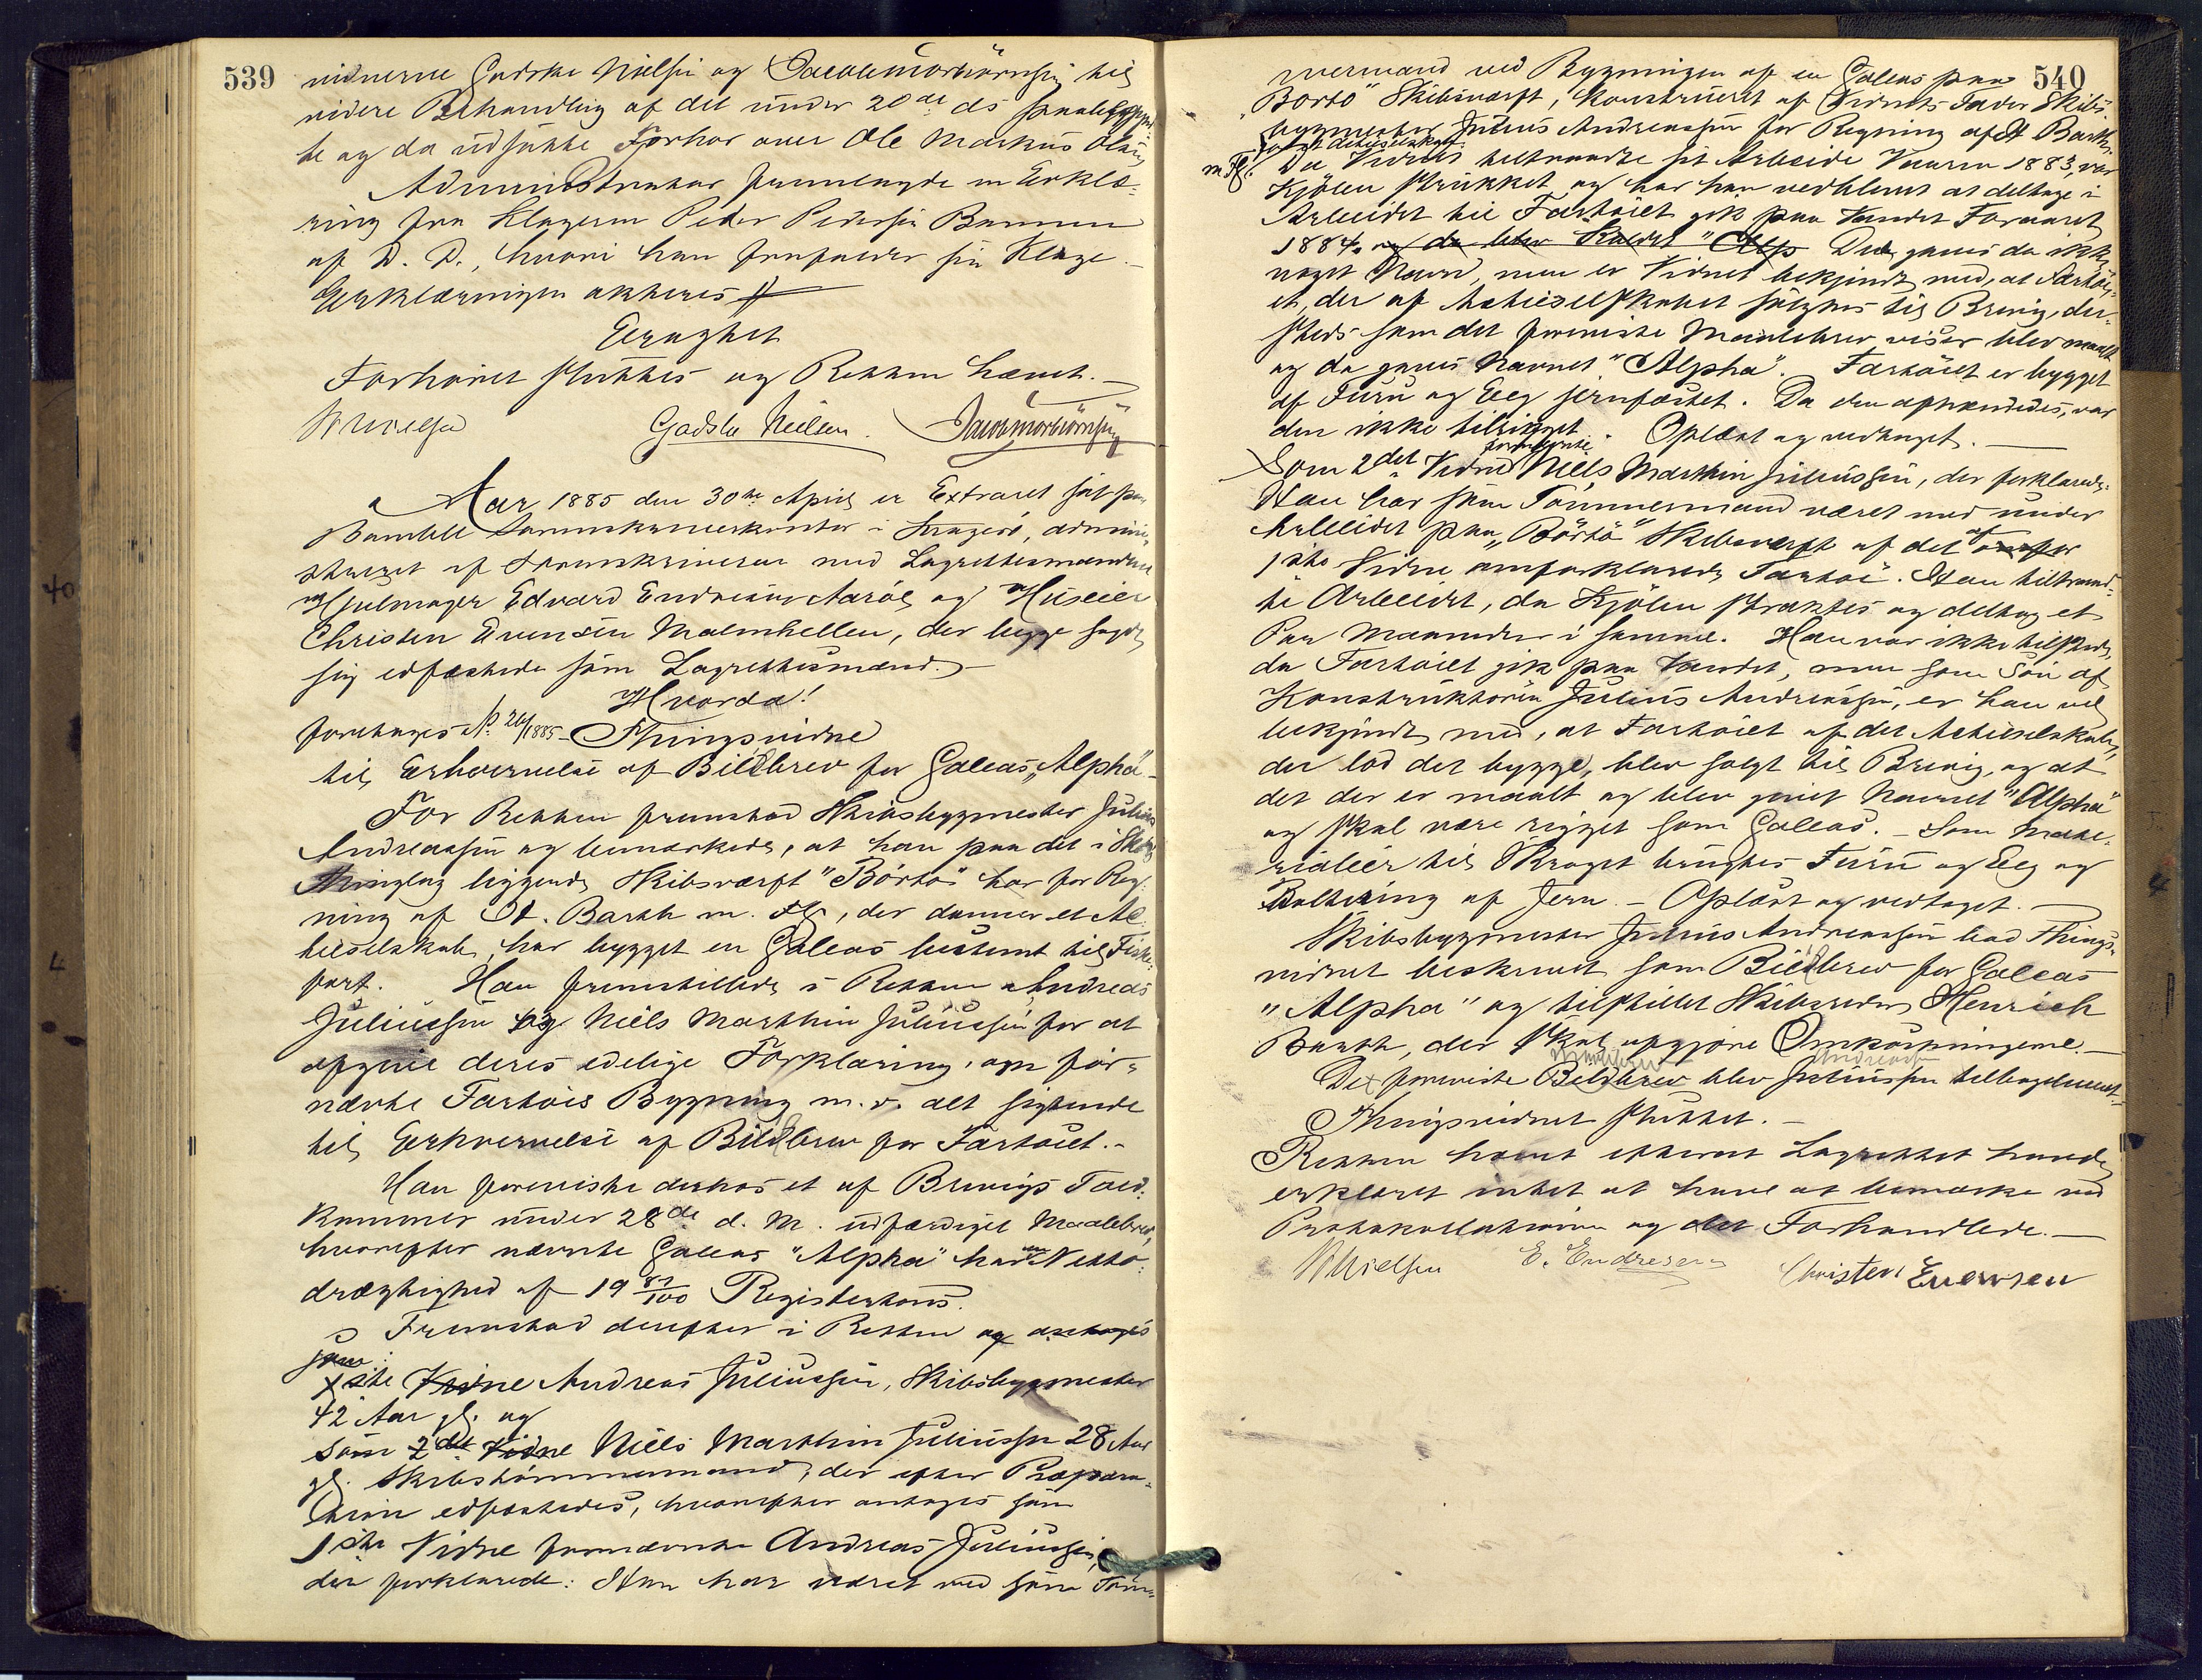 539
vidnerne Gadske Nielsen og Jacob Morbjörnsen til
videre Behandling af det under 20de ds paabegyndte
te og da udsatte Forhør over Ole Markus Olsen
Administrator fremlagde en Erklæ-
ring fra Klageren Peder Pedersen Bamm
af D. D., hvori han frafalder sin Klage.
Erklæringen aktheres #
Eragtet
Forhøret sluttes og Retten hævet.
N Nielsen Gadske Neilsen. Jacob Morbiörnsen
Aar 1885 den 30te April er Extraret sat paa
Bamble Sorenskriverkontor i Kragerø, admini-
streret af Sorenskriveren med Lagrettesmændene
Hjulmager Edvard Endresen Aarøe og Huseier
Christen Evensen Malmhellen, der begge sagde
sig edfæstede som Lagrettesmænd.
Hvorda!
foretages No 24/1885 Thingsvidne
til Erhvervelse af Bilbrev for Galeas „Alpha"
For Retten fremstod Skibsbygmester Julius
Andreassen og bemærkede, at han paa det i Skaatø
Thinglag liggende Skibsværft "Börtö" har for Reg-
ning af H. Barth m. Fl., der danner et Ac-
tieselskab, har bygget en Galeas bestemt til Fiske-
fart. Han fremstillede i Retten Andreas
Juliussen og Niels Marthin Juliussen for at
afgive deres edelige Forklaring om før-
nævnte Fartøis Bygning m. v. alt sigtende
til Erhvervelse af Bilbrev for Fartøiet.-
Han foreviste derhos et af Brevigs Told-
kammer under 28de d. M. udfærdiget Maalebrev,
hvorefter nævnte Galeas "Alpha" har en Netto-
drægtighed af 19 87/100 Registertons.
Fremstod derefter i Retten og antoges
som
1ste Vidne Andreas Juliussen, Skibsbygmester
42 Aar gl. og
som 2det Vidne Niels Marthin Juliussen 28 Aar
gl. Skibstømmermand, der efter Præpara-
tion edfæstedes, hvorefter antoges som
1ste Vidne fornævnte Andreas Juliussen,
der forklarede: Han har været med som Tøm-
540
mermand ved Bygningen af en Galeas paa
"Börtö" Skibsværft, konstrueret af Vidnets Fader Skibs-
bygmester Julius Andreassen for Regning af H Barth
m. Fl. Actieselskab
Da Vidnet tiltraadte sit Arbeide Vaaren 1883, var
Kjølen strukket og har han vedblevet at deltage i
Arbeidet til Fartøiet gik paa Vandet Foraaret
1884 og da blev kaldet "Alp Der gaves da ikke
noget Navn, men er Vidnet bekjendt med, at Fartøi-
et, der af Actieselskabet solgtes til Brevig, der-
steds som det foreviste Maalebrev viser blev maalt
og da gaves Navnet "Alpha". Fartøiet er bygget
af Furu og Eeg jernfæstet. Da den afhændedes, var
den ikke tilrigget. Oplæst og vedtaget.
Som 2det Vidne fornævnte Niels Marthin Juliussen, der forklarede:
Han har som Tømmermand været med under
Arbeidet paa „Börtö" Skibsværft af det af
1ste Vidne omforklarede Fartøi. Han tiltraad-
te Arbeidet, da Kjølen straktes og deltog et
Par Maaneder i samme. Han var ikke tilstede,
da Fartøiet gik paa Vandet, men som Søn af
Konstruktøren Julius Andreassen, er han vel
bekjendt med, at Fartøiet af det Actieselskab,
der lod det bygge, blev solgt til Brevig, og at
det der er maalt og blev givet Navnet "Alpha"
og skal være rigget som Galeas. - Som Mate-
rialier til Skroget brugtes Furu og Eeg og
Boltering af Jern. - Oplæst og vedtaget.
Skibsbygmester Julius Andreassen bad Things-
vidnet beskrevet som Bilbrev for Galeas
"Alpha" og tilstillet Skibsreder Henrich
Barth, der skal opgjøre Omkostningerne.-
Det foreviste Bilbrev blev Juliussen tilbageleveret.
Maalebrev Andreassen
Thingsvidnet sluttet.
Retten hævet efterat Lagrettet havde
erklæret intet at have at bemærke ved
Protokollationen og det Forhandlede.
N Nielsen E. Endresen Christen Evensen